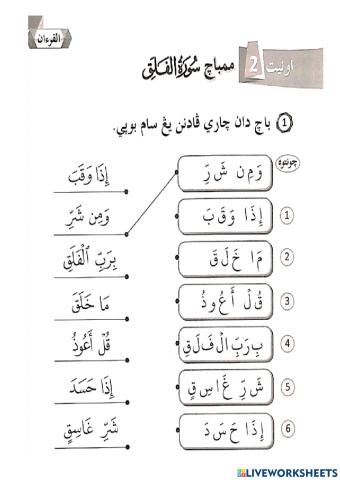 القرءان
اونيت 2 ممباچ سُورَةُ الفَلَقِ
1 باچ دان چاري ڤادنن يڠ سام بوڽي.
چونتوه
وَ مِن شَ رِّ
إِذَا وَقَبَ
1 إِ ذَ ا وَ قَ بَ
وَمِن شَرِّ
2 مَ ا خَ لَ قَ
بِرَبِّ ٱلْفَلَقِ
3 قُ لْ أَ عُ و ذُ
مَا خَلَقَ
4 بِ رَ بِّ ا لْ فَ لَ قِ
قُلْ أَعُوذُ
5 شَ رِّ غَ ا سِ قٍ
إِذَا حَسَدَ
6 إِ ذَ ا حَ سَ دَ
شَرِّ غَاسِقٍ
LIVEWORKSHEETS